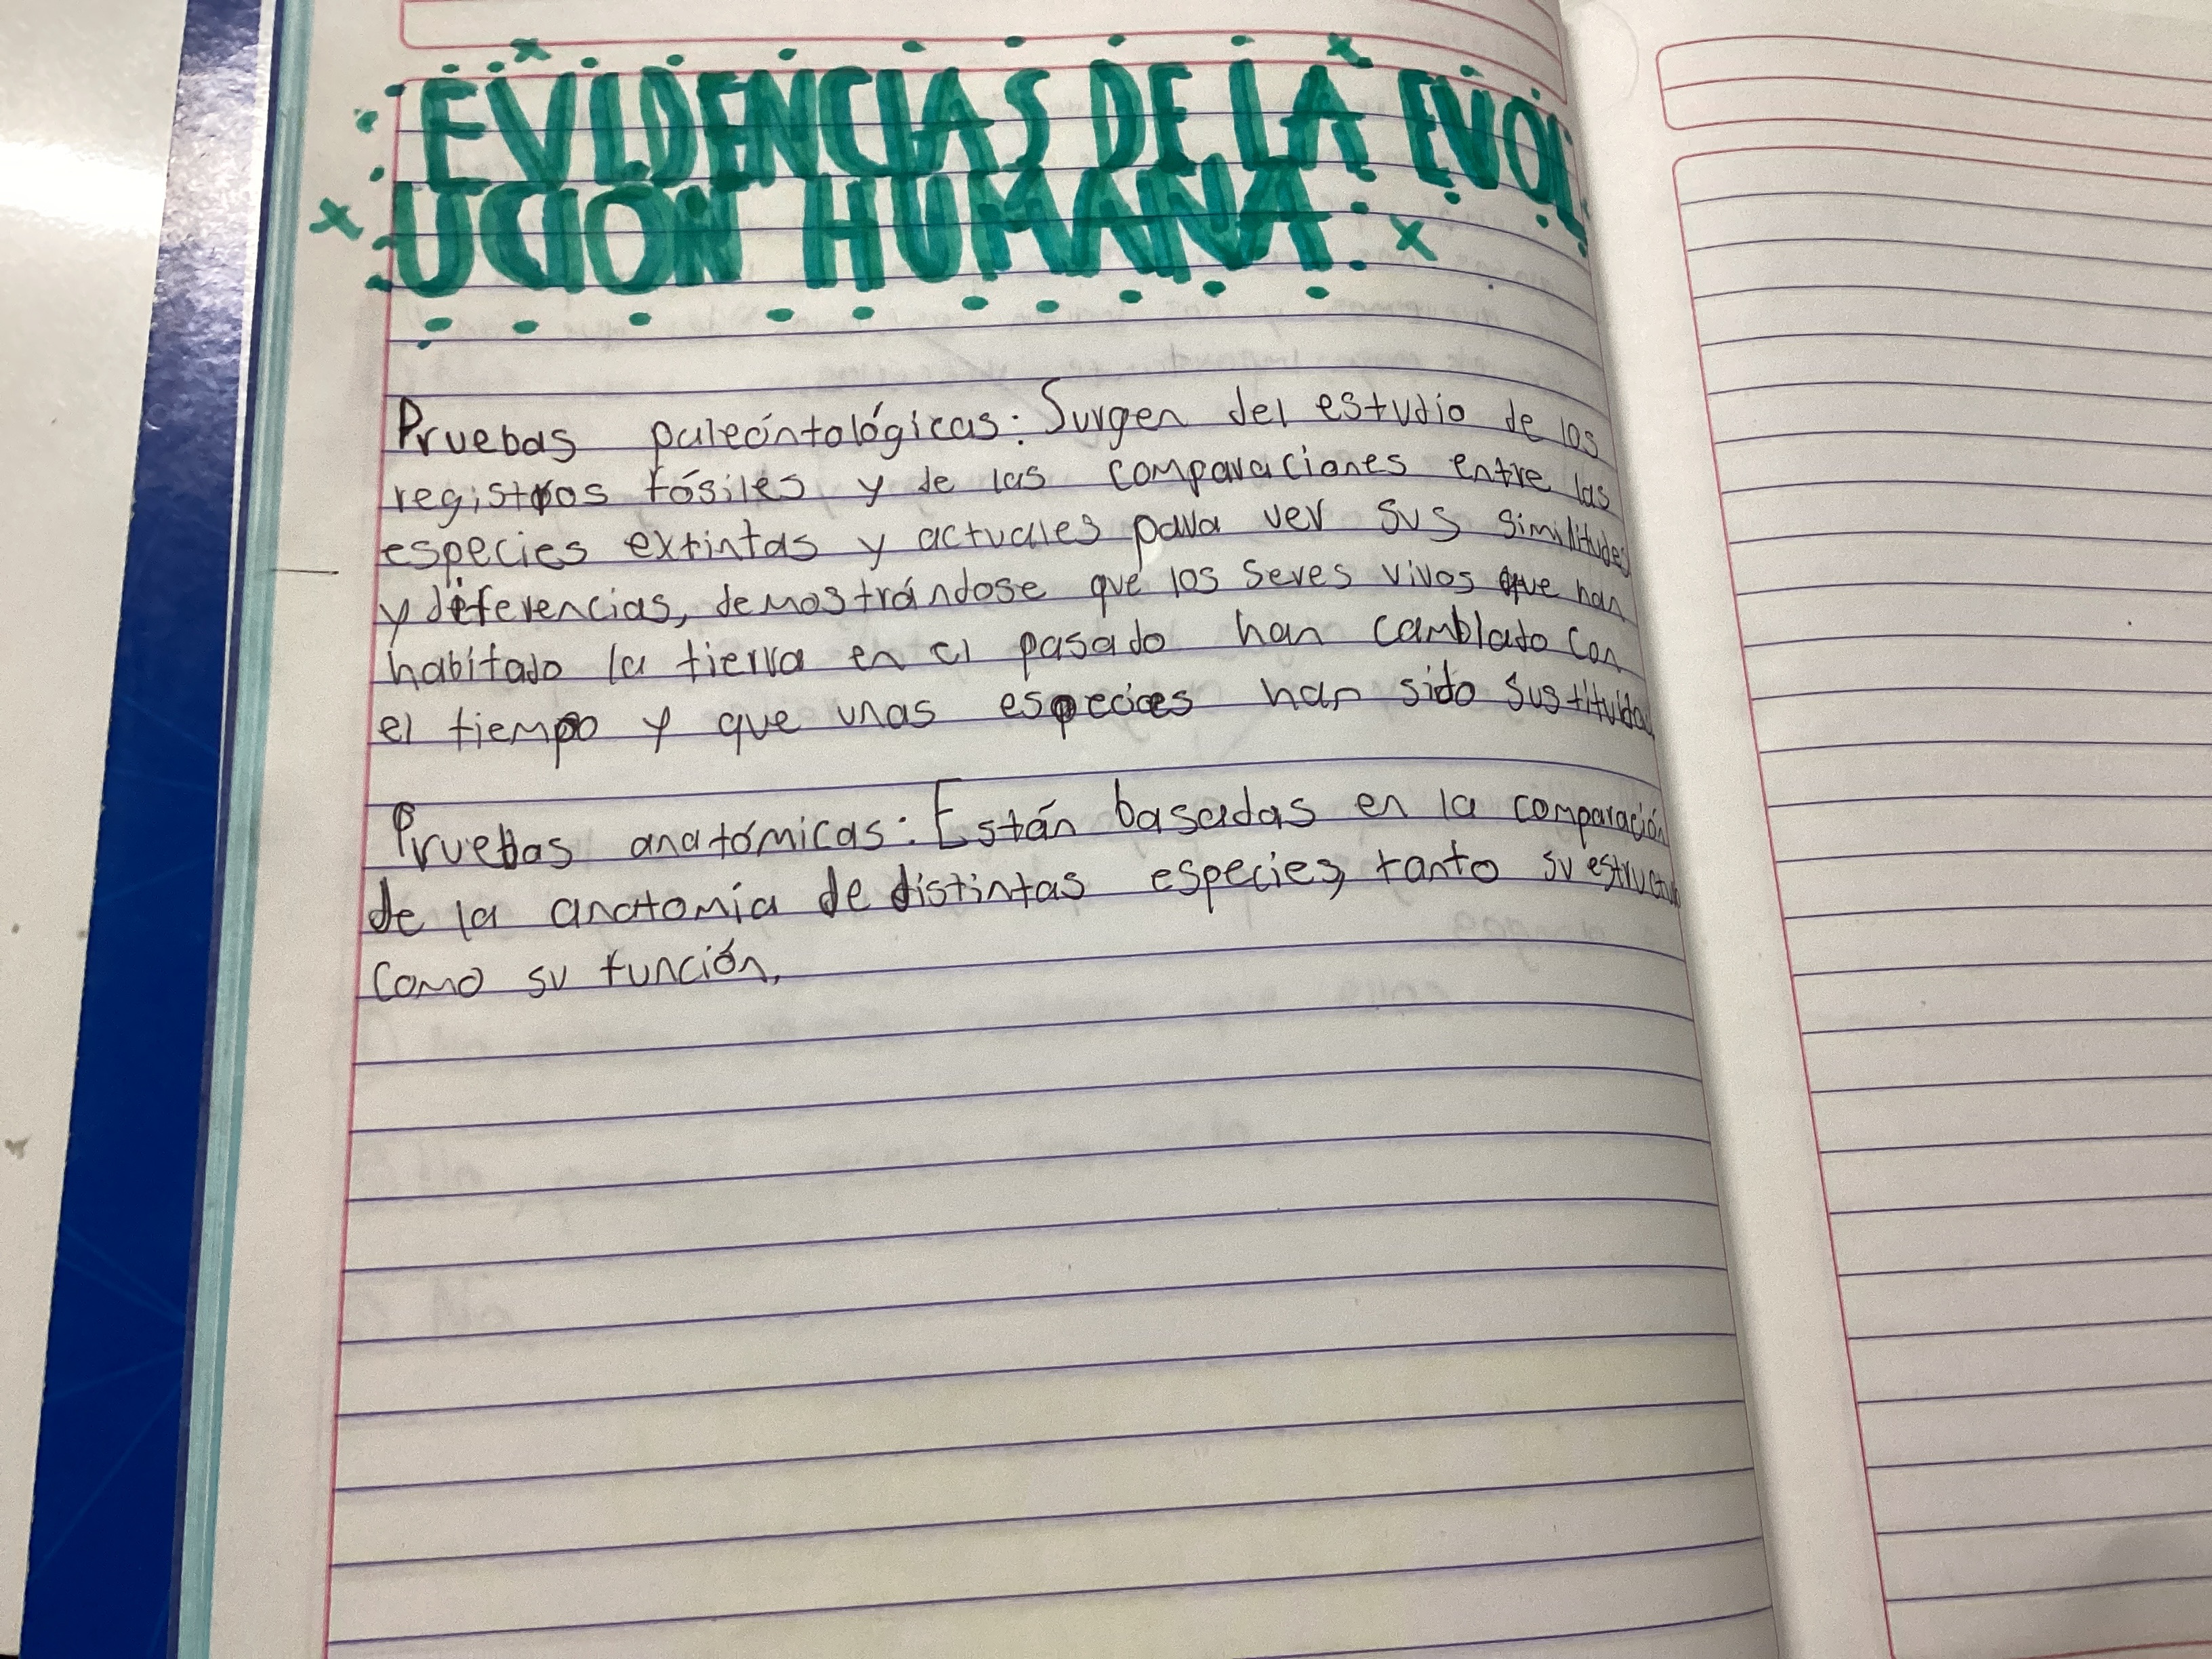 EVIDENCIAS DE LA EVOL
UCION HUMANA
Pruebas paleóntológicas: Surgen del estudio de los
registros fósiles y de las comparaciones entre las
especies extintas y actuales para ver sus similitudes
y diferencias, demostrándose que los seres vivos que han
habitado la tierra en el pasado han cambiado con
el tiempo y que unas especies han sido sustituidas
Pruebas anatómicas: Están basadas en la comparación
de la anatomía de distintas especies, tanto su estructura
como su función.